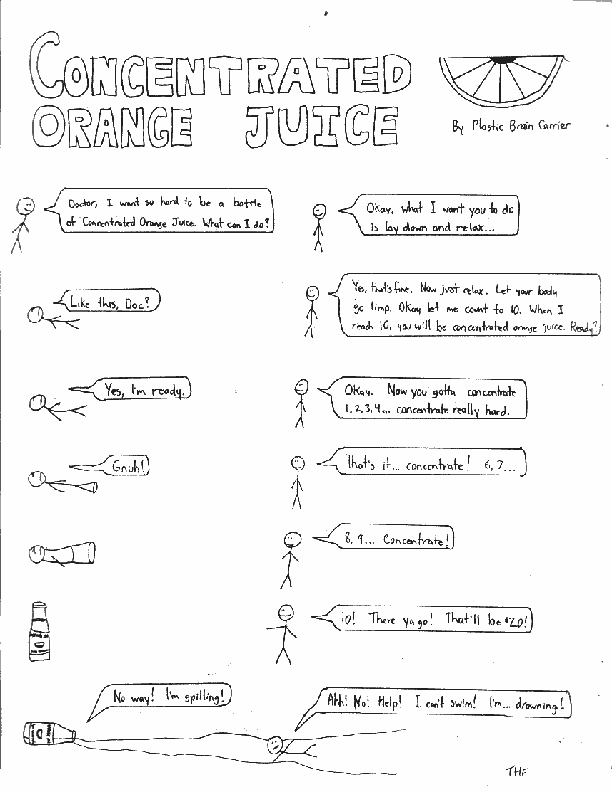 CONCENTRATED
ORANGE JUICE
By Plastic Brain Carrier
Doctor, I want so hard to be a bottle
of Concentrated Orange Juice. What can I do?
Okay, what I want you to do
is lay down and relax...
Like this, Doc?
Yes, that's fine. Now just relax. Let your body
go limp. Okay let me count to 10. When I
reach 10, you will be concentrated orange juice. Ready?
Yes, I'm ready.
Okay. Now you gotta concentrate
1, 2, 3, 4... concentrate really hard.
Gnuh!
That's it... concentrate! 6, 7...
8, 9... Concentrate!
10! There ya go! That'll be $20!
No way! I'm spilling!
Ahh! No! Help! I can't swim! I'm... drowning!
THE